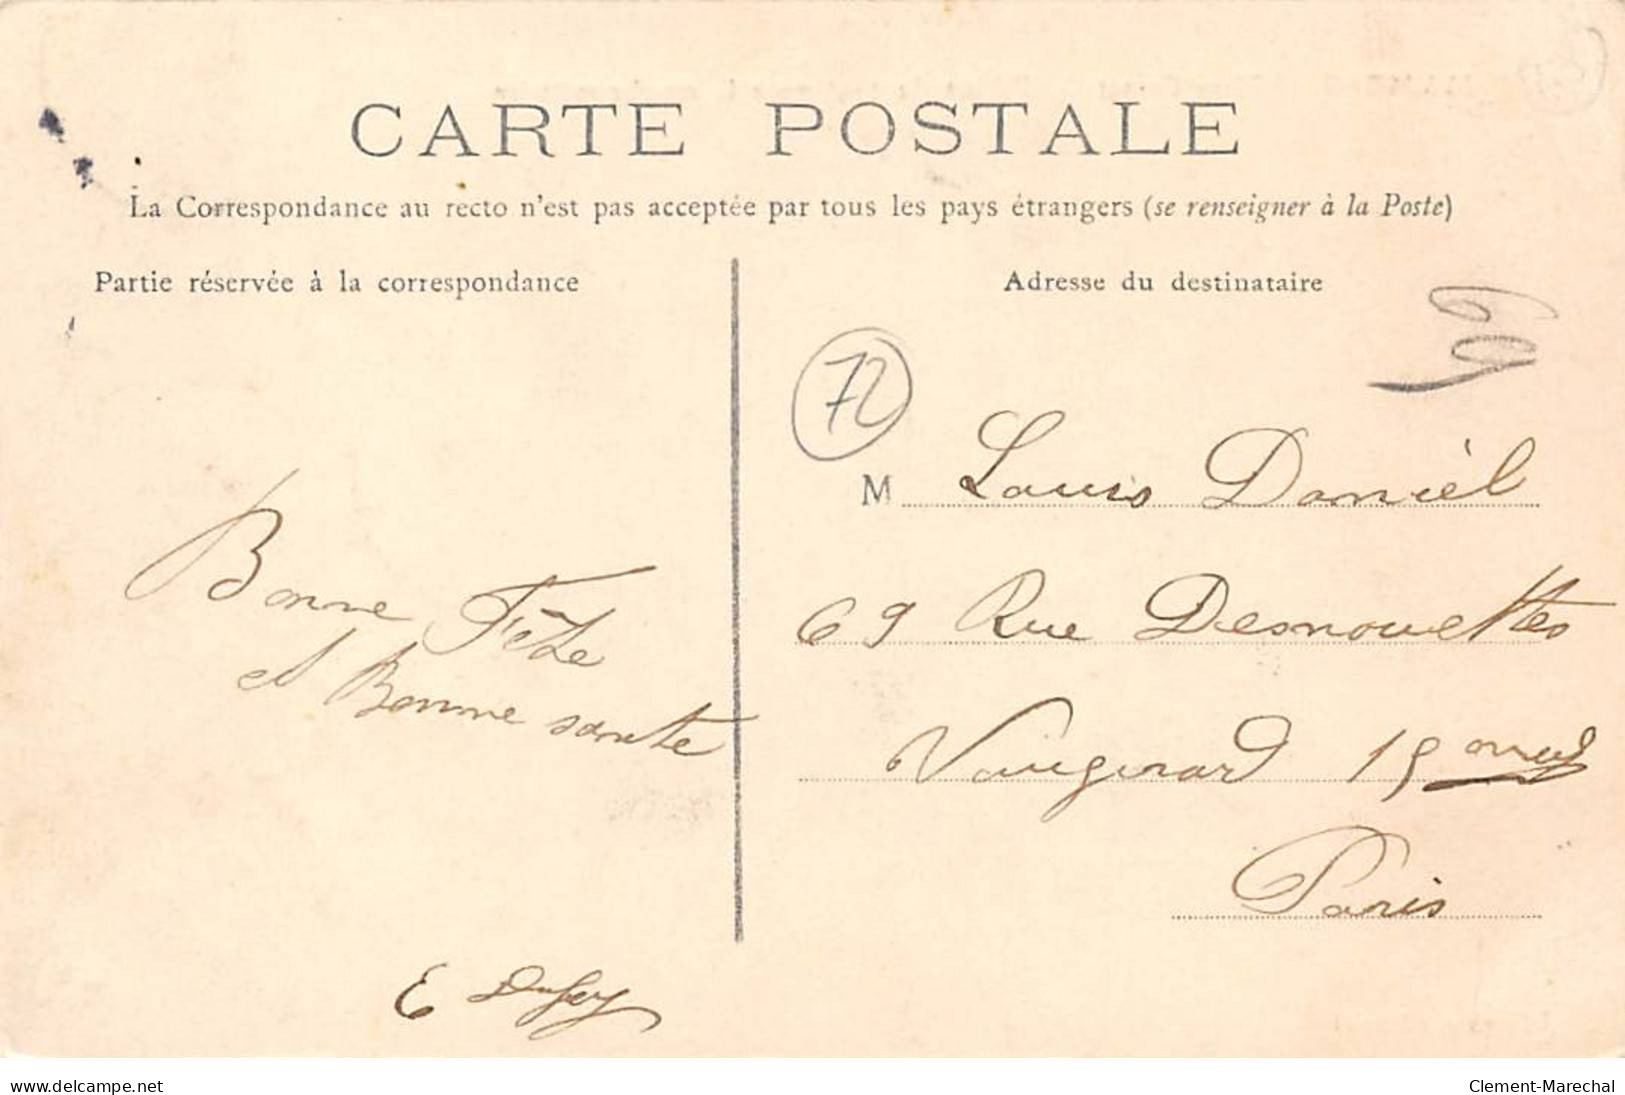 CARTE POSTALE
La Correspondance au recto n'est pas acceptée par tous les pays étrangers (se renseigner à la Poste)
Partie réservée à la correspondance
Adresse du destinataire
72
M Louis Daniel
69 Rue Desnouettes
Vaugirard 15
Paris
Bonne Fête
et Bonne sante
E Dufay
www.delcampe.net
Clement-Marechal